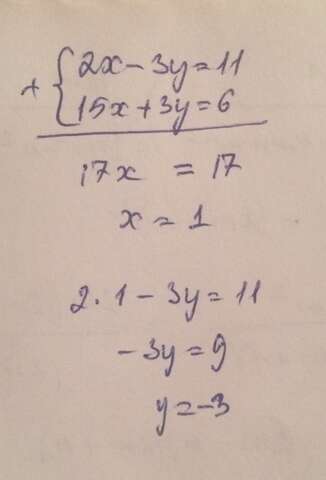 + { 2x - 3y = 11
15x + 3y = 6
17x = 17
x = 1
2 · 1 - 3y = 11
- 3y = 9
y = -3